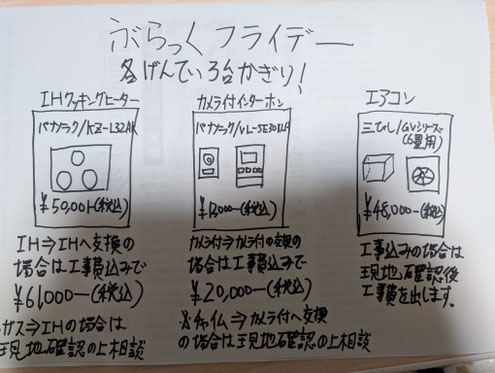 ぶらっくフライデー
各げんてい3台かぎり!
IHクッキングヒーター
パナソニック/KZ-L32AK
¥50,001-(税込)
IH⇒IHへ交換の
場合は工事費込みで
¥61,000-(税込)
ガス⇒IHの場合は
現地確認の上相談
カメラ付インターホン
パナソニック/VL-SE30
(税込)
カメラ付⇒カメラ付の交換の
場合は工事費込みで
¥20,000-(税込)
※チャイム⇒カメラ付へ交換
の場合は現地確認の上相談
エアコン
三びし/GVシリーズ
(6畳用)
¥48,000-(税込)
工事込みの場合は
現地確認後
工事費を出します。